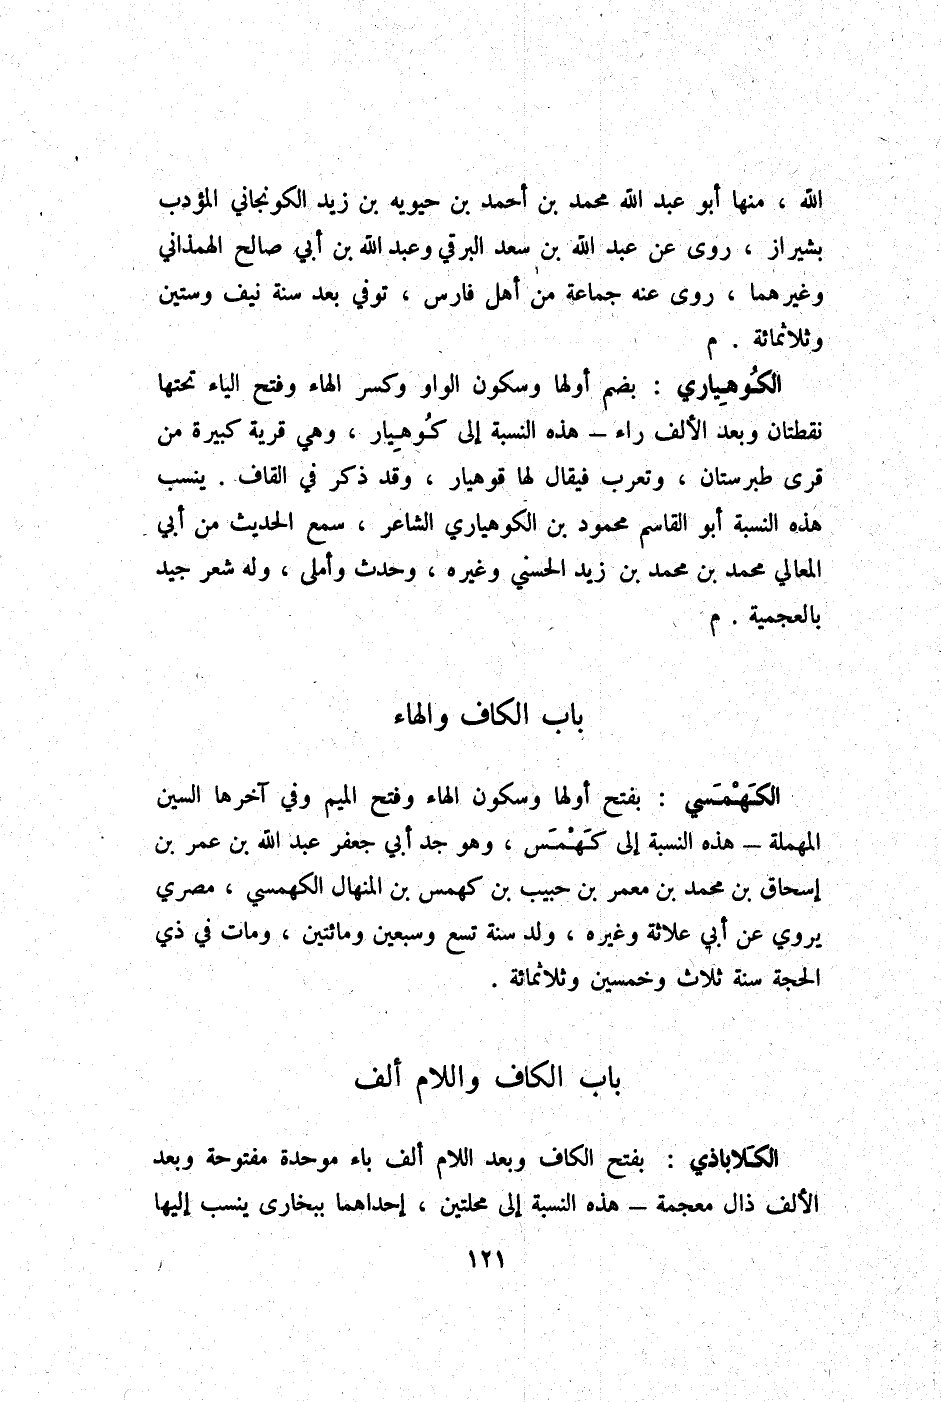 الله ، منها أبو عبد الله محمد بن أحمد بن حيويه بن زيد الكونجاني المؤدب
بشيراز ، روى عن عبد الله بن سعد البرقي وعبد الله بن أبي صالح الهمذاني
وغيرهما ، روى عنه جماعة من أهل فارس ، توفي بعد سنة نيف وستين
وثلاثمائة . م
الكُوهِياري : بضم أولها وسكون الواو وكسر الهاء وفتح الياء تحتها
نقطتان وبعد الألف راء – هذه النسبة إلى كُوهِيار ، وهي قرية كبيرة من
قرى طبرستان ، وتعرب فيقال لها قوهيار ، وقد ذكر في القاف . ينسب
هذه النسبة أبو القاسم محمود بن الكوهياري الشاعر ، سمع الحديث من أبي
المعالي محمد بن محمد بن زيد الحسني وغيره ، وحدث وأملى ، وله شعر جيد
بالعجمية . م
باب الكاف والهاء
الكَهْمَسي : بفتح أولها وسكون الهاء وفتح الميم وفي آخرها السين
المهملة – هذه النسبة إلى كَهْمَس ، وهو جد أبي جعفر عبد الله بن عمر بن
إسحاق بن محمد بن معمر بن حبيب بن كهمس بن المنهال الكهمسي ، مصري
يروي عن أبي علاثة وغيره ، ولد سنة تسع وسبعين ومائتين ، ومات في ذي
الحجة سنة ثلاث وخمسين وثلاثمائة .
باب الكاف واللام ألف
الكَلاباذي : بفتح الكاف وبعد اللام ألف باء موحدة مفتوحة وبعد
الألف ذال معجمة – هذه النسبة إلى محلتين ، إحداهما ببخارى ينسب إليها
١٢١